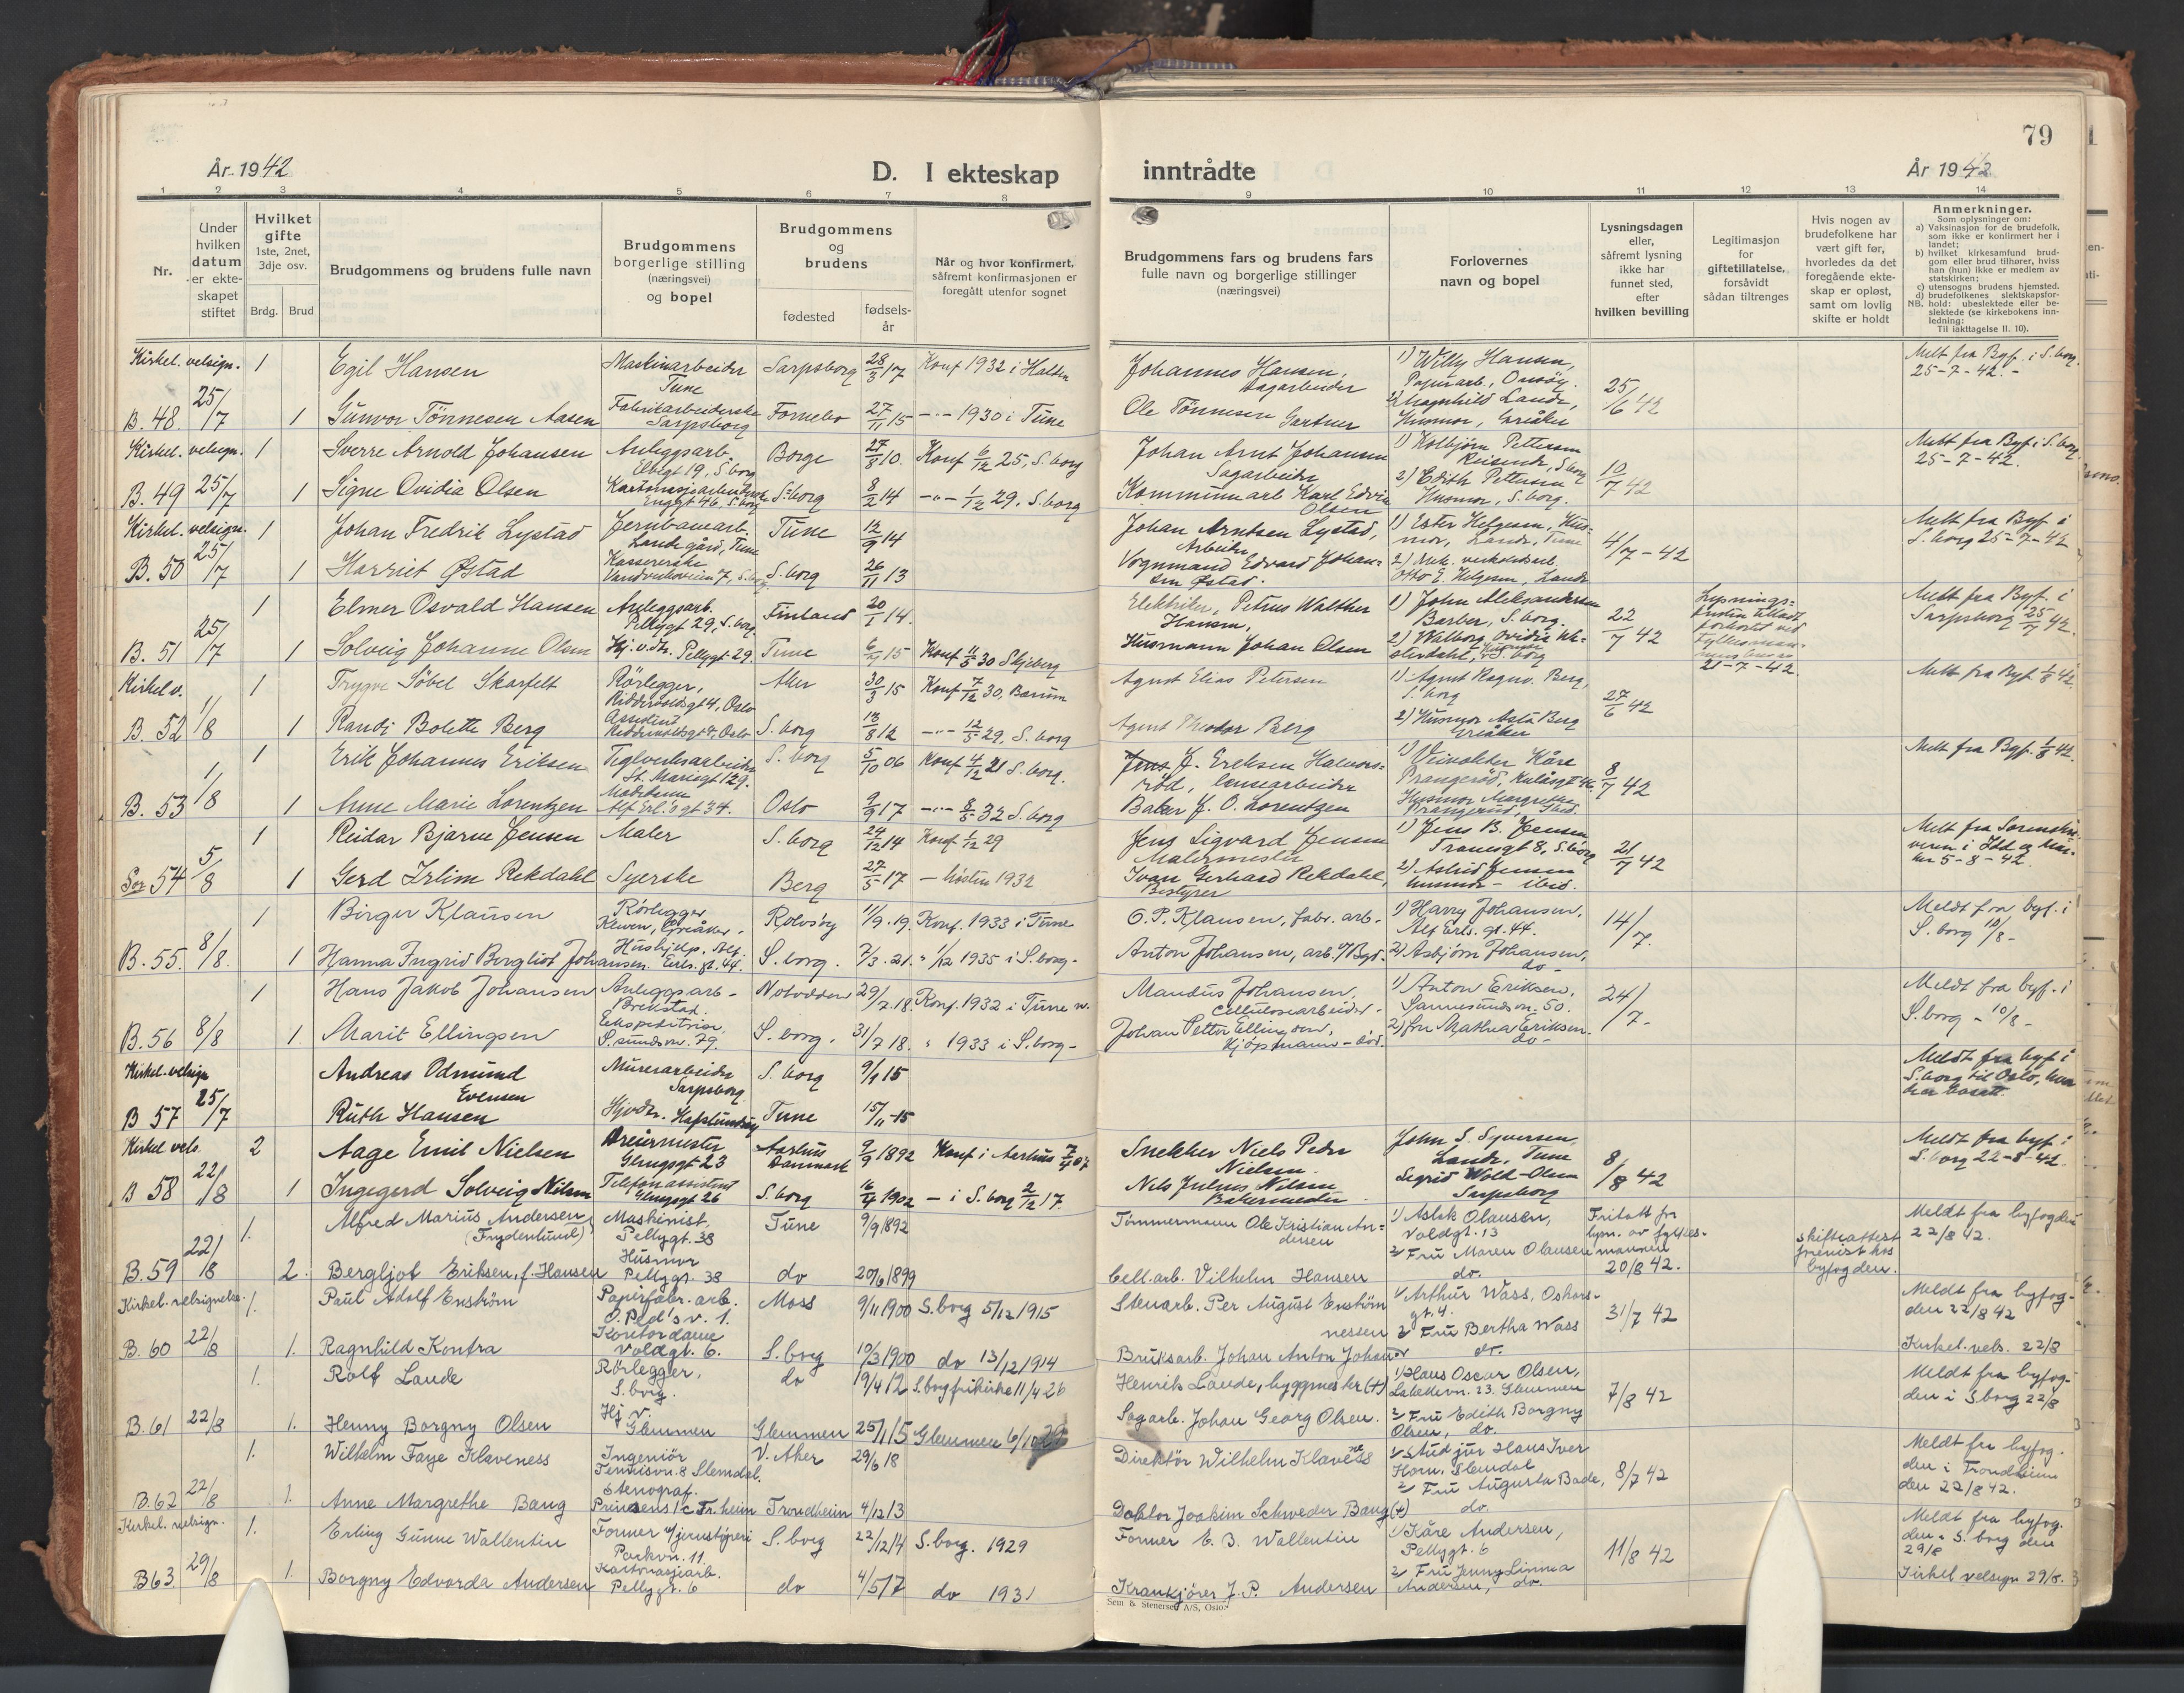 79
År 1942
D. I ekteskap
inntrådte
År 1942
1 2 3 4 5 6 7 8 9 10 11 12 13 14
Nr.
Under hvilken datum er ekteskapet stiftet
Hvilket gifte
1ste, 2net, 3dje osv.
Brdg. Brud
Brudgommens og brudens fulle navn
Brudgommens borgerlige stilling (næringsvei) og bopel
Brudgommens og brudens
fødested
fødselsår
Når og hvor konfirmert, såfremt konfirmasjonen er foregått utenfor sognet
Brudgommens fars og brudens fars fulle navn og borgerlige stillinger (næringsvei)
Forlovernes navn og bopel
Lysningsdagen eller, såfremt lysning ikke har funnet sted, efter hvilken bevilling
Legitimasjon for giftetillatelse, forsåvidt sådan tiltrenges
Hvis nogen av brudefolkene har vært gift før, hvorledes da det foregående ekteskap er opløst, samt om lovlig skifte er holdt
Anmerkninger.
Som oplysninger om:
a) Vaksinasjon for de brudefolk, som ikke er konfirmert her i landet;
b) hvilket kirkesamfund brudgom eller brud tilhører, hviss han (hun) ikke er medlem av statskirken;
c) utensogns brudens hjemsted.
d) brudefolkenes slektskapsforhold: ubeslektede eller beslektede (se kirkebokens innledning:
NB. Til iakttagelse II. 10).
Kirkel. velsign. 1 Egil Hansen Maskinarbeider Tune Sarpsborg 28/3 17 Konf 1932 i Halden Johannes Hansen, Sagarbeider 1) Willy Hansen, Papirarb., Onsøy. 25/6 42 Melt fra Byf. i S.borg 25-7-42.-
B. 48 25/7 1 Gunvor Tönnesen Aasen Fabrikarbeiderske Sarpsborg Fornebo 27/11 15 -"- 1930 i Tune Ole Tönnesen Gartner 2) Magnhild Lande, Husmor, Greåker
Kirkel. velsign. 1 Sverre Arnold Johansen Anleggsarb. 19, S.borg Borge 27/8 10. Konf 6/12 25, S.borg Johan Arnt Johansen Sagarbeider 1) Kolbjørn Pettersen Reisende, S.borg 10/7 42 Melt fra Byf. i S.borg 25-7-42.
B. 49 25/7 1 Signe Ovidia Olsen Kartonasjearbeiderske Enggt 46, S.borg S.borg 8/2 14 -"- 1/12 29. S.borg Kommunearb Karl Edvin Olsen 2) Edith Pettersen Husmor, S.borg.
Kirkel. velsign. 1 Johan Fredrik Lystad Jernbanearb. Lande gård, Tune Tune 12/9 14 Johan Arntsen Lystad, Arbeider 1) Ester Helgesen, Husmor, Lande, Tune 4/7-42 Melt fra Byf i S.borg 25-7-42
B. 50 25/7 1 Harriet Østad Kassererske 7, S.borg S.borg 26/11 13 Vognmand Edvard Johansen Østad. 2) Otto E. Helgesen, Lande
1 Elmer Osvald Hansen Anleggsarb. Pellygt 29, S.borg Finland 20/1 14. Elektriker, Petrus Walther Hansen, 1) John Aleksandersen Barber, S.borg. 22/7 42 21-7-42. Melt fra Byf. i Sarpsborg 25/7 42.
B. 51 25/7 1 Solveig Johanne Olsen Hj. v. Pellygt 29. Tune 15 Konf 11/5 30 Skjeberg Husmann Johan Olsen 2) Walborg Ovidie S.borg
Kirkel v. 1 Trygve Söbel Skarfelt Rörlegger, Riddervoldsgt 4, Oslo Aker 30/3 15 Konf 7/12 30, Bærum Agent Elias Petersen 1) Agent Ragnv. Berg, S.borg 27/6 42 Melt fra Byf. 1/8 42.
B. 52 1/8 1 Randi Bolette Berg Assistent Riddervoldsgt 4, Oslo S.borg 13/8 12 -"- 12/5 29, S.borg Agent Theodor Berg 2) Husmor Asta Berg Greåker
1 Erik Johannes Eriksen Teglverksarbeider St. Mariegt 129. S.borg 5/10 06 Konf 4/12 21 S.borg. J. Eriksen Halvorsröd, lensearbeider 1) Veivokter Kåre Prangeröd, 8/7 42 Melt fra Byf. 1/8 42.
B. 53 1/8 1 Anne Marie Lorentzen Alf Erl.'s gt 34. Oslo 9/9 17 -"- 8/5 32 S.borg Baker J. O. Lorentzen Husmor Margrethe Prangeröd, ibid.
1 Reidar Bjarne Jensen Maler S.borg 24/12 14 Konf 1/12 29 Jens Sigvard Jensen Malermester 1) Jens B. Jensen Tranesgt 8, S.borg 21/7 42 Melt fra Sorenskriveren i Idd og Marker 5-8-42
Sor 54 5/8 1 Gerd Irlim Rekdahl Syerske Berg 27/5 17 - hösten 1932 Ivar Gerhard Rekdahl, Bestyrer 2) Astrid Jensen husmor - ibid.
1 Birger Klausen Rørlegger Greåker. Rolvsøy 11/9.19. Konf. 1933 i Tune O. P. Klausen, fabr. arb. 1) Harry Johansen, Alf Erls. gt. 44. 14/7. Meldt fra byf. i S.borg 10/8-
B. 55. 8/8. 1 Hanna Ingrid Bergliot Johansen. Hushjelp. Alf Erls. gt. 44. S.borg. 7/3.21. " 1/12 1935 i S.borg- Anton Johansen, arb. 2) Asbjörn Johansen, do-
1 Hans Jakob Johansen Anleggsarb- Brekstad. Notodden 29/7.18. Konf. 1932 i Tune Mandus Johansen, Cellulosearbeider. 1) Anton Eriksen, Sannesundsv. 50. 24/7- Meldt fra byf. i S.borg - 10/8-
B. 56 8/8 1. Marit Ellingsen Ekspeditrise. S.sundsv. 79. S.borg. 31/7 18. " 1933 i S.borg- Johan Petter Ellingsen, Kjöpmann - död. 2) fru Mathea Eriksen. do-
Kirkel. velsign Andreas Odmund Evensen Murerarbeider Sarpsborg S.borg 9/9 15 Meldt fra byf i S.borg til Oslo, hvor de er bosatt.
B 57 25/7 Ruth Hansen Hafslundsøy Tune 15/11-15
Kirkel vels. 2 Aage Emil Nielsen Dreiermester Glengsgt 23 Aarhus Danmark 9/9 1892 Konf i Aarhus 7/4 07 Snekker Niels Peder Nielsen. John S. Syversen Lande, Tune 8/8 42 Meldt fra byf. i S.borg 22-8-42.
B 58 22/8 1 Ingegerd Solveig Nilsen Telefonassistent Glengsgt 26 S.borg 16/4 1902 - i S.borg 2/12 17. Nils Julius Nilsen Bakermester. Sigrid Wold-Olsen Sarpsborg
1. Alfred Marius Andersen (Frydenlund) Maskinist, Pellygt. 38 Tune 9/9 1892 Tømmermann Ole Kristian Andersen 1) Aslak Olausen, Voldgt. 13 Fritatt fra lysn. av fylkesmannen 20/8 42. Skifteattest fremvist hos byfogden. Meldt fra byfogden 22/8 42.
B. 59 22/8 2. Bergljot Eriksen, f. Hansen Husmor Pellygt. 38 do 20/6 1899 Cell.arb. Vilhelm Hansen 2) Fru Maren Olausen do.
Kirkel. velsignelse 1. Paul Adolf Enström Papirfabr. arb. O. Ped's v. 1. Moss 9/11 1900 S.borg 5/12 1915 Stenarb. Per August Enström 1) Arthur Wass, Oskarsgt. 4. 31/7 42 Meldt fra byfogden 22/8 42
B. 60 22/8 1. Ragnhild Kontra Kontordame Voldgt. 6. S.borg 10/3 1900 do 13/12 1914 Bruksarb. Johan Anton Johannessen 2) Fru Bertha Wass do. Kirkel. vels. 22/8
1. Rolf Lande Rørlegger, S.borg. do 19/4 12 S.borg frikirke 11/4 26 Henrik Lande, byggmester (+) 1) Hans Oscar Olsen, 23. Glemmen 7/8 42 Meldt fra byfogden i S.borg 22/8
B. 61 22/8 1. Henny Borgny Olsen Hj. v. Glemmen Glemmen 25/1 15 Glemmen 6/10 29 Sagarb. Johan Georg Olsen. 2) Fru Edith Borgny Olsen, do.
1. Wilhelm Faye Klaveness Ingeniör Tennisvn. 8 Slemdal. V. Aker 29/6 18 Direktör Wilhelm Klaveness 1) Stud jur Hans Iver Horn, Slemdal 8/7 42 Meldt fra byfogden i Trondheim den 22/8 42.
B. 62 22/8 1. Anne Margrethe Bang Stenograf. Prinsens 1c Tr.heim Trondheim 4/12 13 Doktor Joakim Schweder Bang (+) 2) Fru Augusta Bade, do.
Kirkel. velsign. 1. Erling Gunne Wallentin Former v/jernstøperi Parkvn. 11. S.borg 22/12 14 S.borg. 1929 Former E. B. Wallentin 1) Kåre Andersen, Pellygt. 6 11/8 42 Meldt fra byfogden i S.borg den 29/8
B 63. 29/8 1. Borgny Edvarda Andersen Kartonasjearb. Pellygt. 6 do 4/5 17 do 1931 Krankjörer J. P. Andersen 2) Fru Jenny Linnea Andersen, do. Kirkel velsign 29/8.
Sem & Stenersen A/S, Oslo.